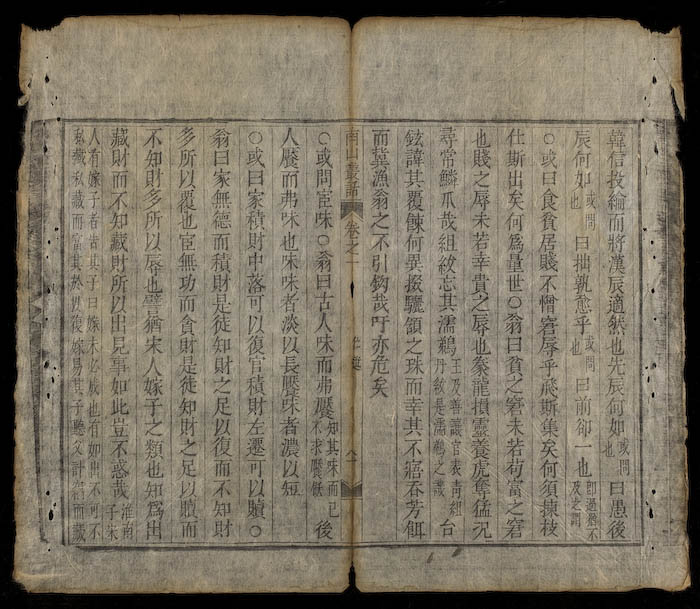 韓信投綸而將漢辰適然也先辰何如或問也曰愚後
辰何如或問也曰拙孰愈乎或問也曰前卻一也即過猶不及之謂
○或曰食貧居賤不憎窘辱乎飛斯集矣何須揀枝
仕斯出矣何爲量世○翁曰貧之窘未若苟富之窘
也賤之辱未若幸貴之辱也豢龍損靈養虎奪猛况
尋常鱗爪哉組紱忘其濡鵜王及善讓官表青組丹紱是濡鵜之譏台
鉉諱其覆餗何異掇驪頷之珠而幸其不寤吞芳餌
而冀漁翁之不引鈎哉吁亦危矣
南山叢話 卷之一 八
○或問宦味○翁曰古人味而弗饜知其味而已不求饜飫後
人饜而弗味也味味者淡以長饜味者濃以短
○或曰家積財中落可以復官積財左遷可以贖○
翁曰家無德而積財是徒知財之足以復而不知財
多所以覆也宦無功而貪財是徒知財之足以贖而
不知財多所以辱也譬猶宋人嫁子之類也知爲出
藏財而不知藏財所以出見事如此豈不惑哉淮南子宋
人有嫁子者告其子曰嫁未必成也有如出不可不
私藏私藏而富其於以復嫁易其子聽父計竊而藏